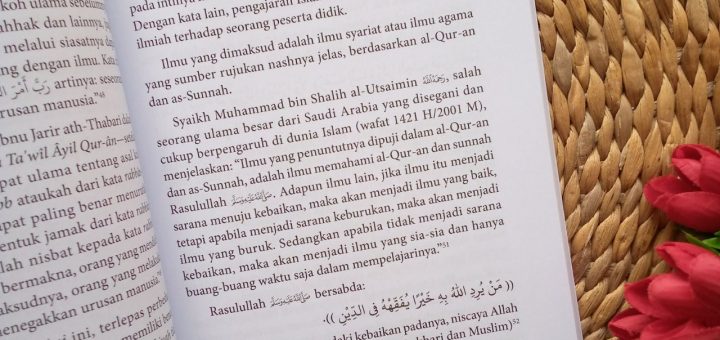 koh ulama sebelum
hhak dan lainnya,
melalui siasatnya
ng dengan ilmu. Kata
artinya: seseo
urusan manusia."48
bnu Jarir ath-Thabari
Ta'wîl Âyil Qur-ân—
pat ulama tentang asal
ataukah dari kata rabb
apat paling benar menur
entuk jamak dari kata
lah nisbat kepada kata
bermakna, orang yang
aksudnya, orang yang
enegakkan urusan manusia."
ini, terlepas
memiliki
pada intinya
Dengan kata lain, pengajaran
ilmiah terhadap seorang peserta didik.
Ilmu yang dimaksud adalah ilmu syariat atau ilmu agama
yang sumber rujukan nashnya jelas, berdasarkan al-Qur-an
dan as-Sunnah.
Syaikh Muhammad bin Shalih al-Utsaimin رحمه الله, salah
seorang ulama besar dari Saudi Arabia yang disegani dan
cukup berpengaruh di dunia Islam (wafat 1421 H/2001 M),
menjelaskan: "Ilmu yang penuntutnya dipuji dalam al-Qur-an
dan as-Sunnah, adalah ilmu memahami al-Qur-an dan sunnah
Rasulullah ﷺ. Adapun ilmu lain, jika ilmu itu menjadi
sarana menuju kebaikan, maka akan menjadi ilmu yang baik,
tetapi apabila menjadi sarana keburukan, maka akan menjadi
ilmu yang buruk. Sedangkan apabila tidak menjadi sarana
kebaikan, maka akan menjadi ilmu yang sia-sia dan hanya
buang-buang waktu saja dalam mempelajarinya."51
Rasulullah ﷺ bersabda:
(( مَنْ يُرِدِ اللهُ بِهِ خَيْرًا يُفَقِّهْهُ فِى الدِّيْنِ )).
kebaikan padanya, niscaya Allah
dan Muslim)52